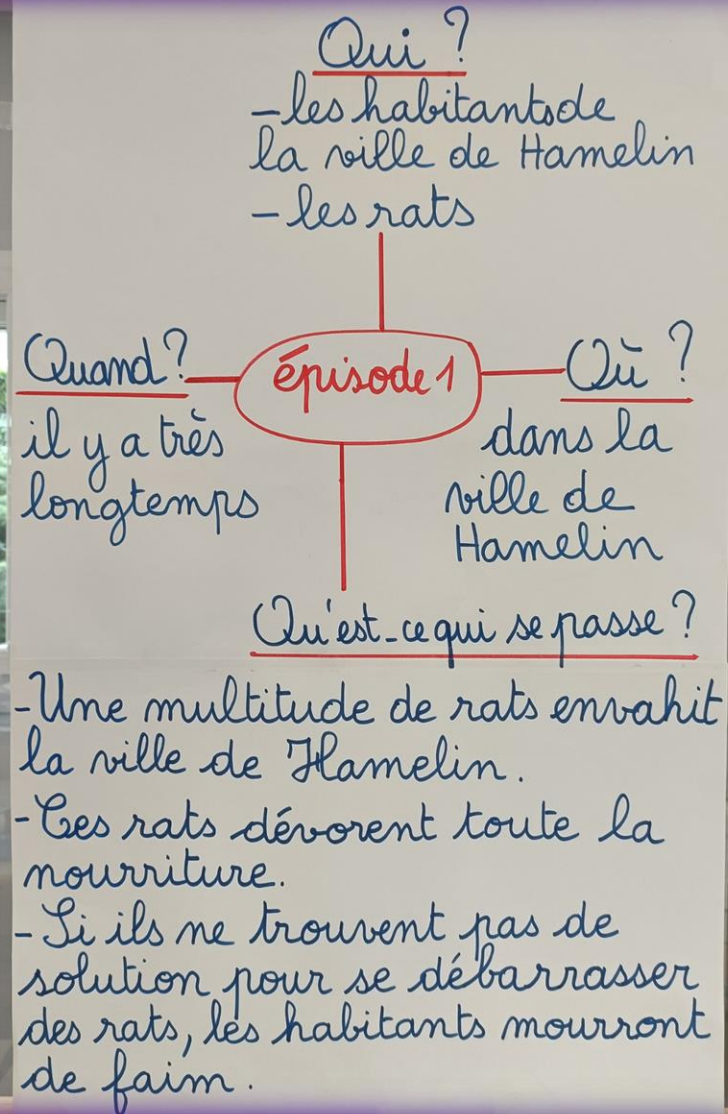 Qui ?
- les habitants de
la ville de Hamelin
- les rats
Quand ?
il y a très
longtemps
épisode 1
Où ?
dans la
ville de
Hamelin
Qu'est-ce qui se passe ?
- Une multitude de rats envahit
la ville de Hamelin.
- Ces rats dévorent toute la
nourriture.
- Si ils ne trouvent pas de
solution pour se débarrasser
des rats, les habitants mourront
de faim.